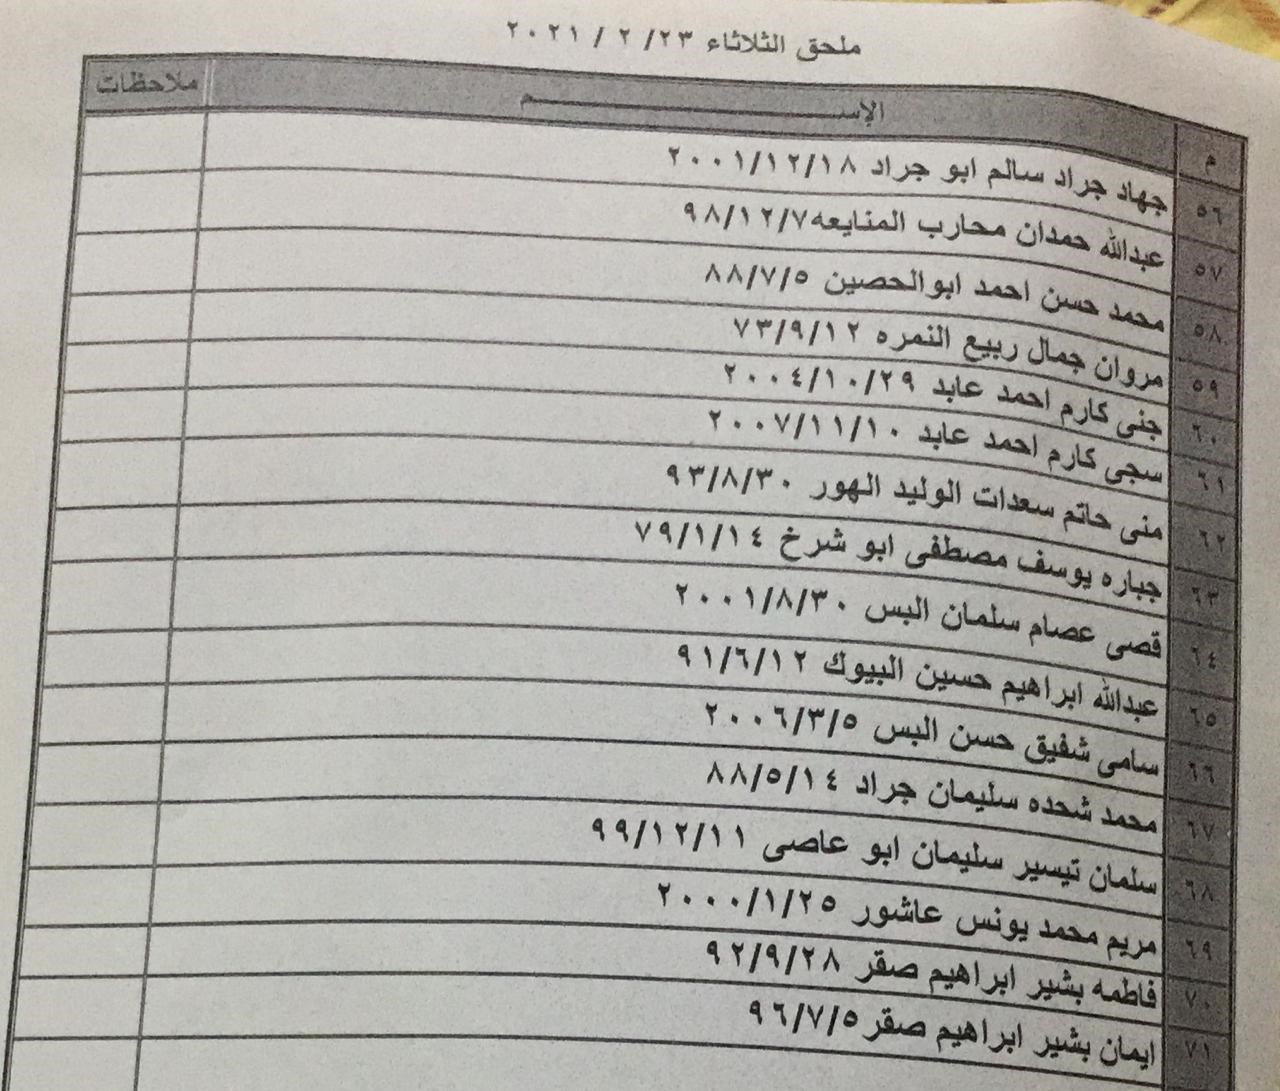 ملحق الثلاثاء ٢٣/ ٢ / ٢٠٢١
م الإســــــم ملاحظات
٥٦ جهاد جراد سالم ابو جراد ٢٠٠١/١٢/١٨
٥٧ عبدالله حمدان محارب المنايعه ٩٨/١٢/٧
٥٨ محمد حسن احمد ابوالحصين ٨٨/٧/٥
٥٩ مروان جمال ربيع النمره ٧٣/٩/١٢
٦٠ جنى كارم احمد عابد ٢٠٠٤/١٠/٢٩
٦١ سجى كارم احمد عابد ٢٠٠٧/١١/١٠
٦٢ منى حاتم سعدات الوليد الهور ٩٣/٨/٣٠
٦٣ جباره يوسف مصطفى ابو شرخ ٧٩/١/١٤
٦٤ قصى عصام سلمان البس ٢٠٠١/٨/٣٠
٦٥ عبدالله ابراهيم حسين البيوك ٩١/٦/١٢
٦٦ سامى شفيق حسن البس ٢٠٠٦/٣/٥
٦٧ محمد شحده سليمان جراد ٨٨/٥/١٤
٦٨ سلمان تيسير سليمان ابو عاصى ٩٩/١٢/١١
٦٩ مريم محمد يونس عاشور ٢٠٠٠/١/٢٥
٧٠ فاطمه بشير ابراهيم صقر ٩٢/٩/٢٨
٧١ ايمان بشير ابراهيم صقر ٩٦/٧/٥